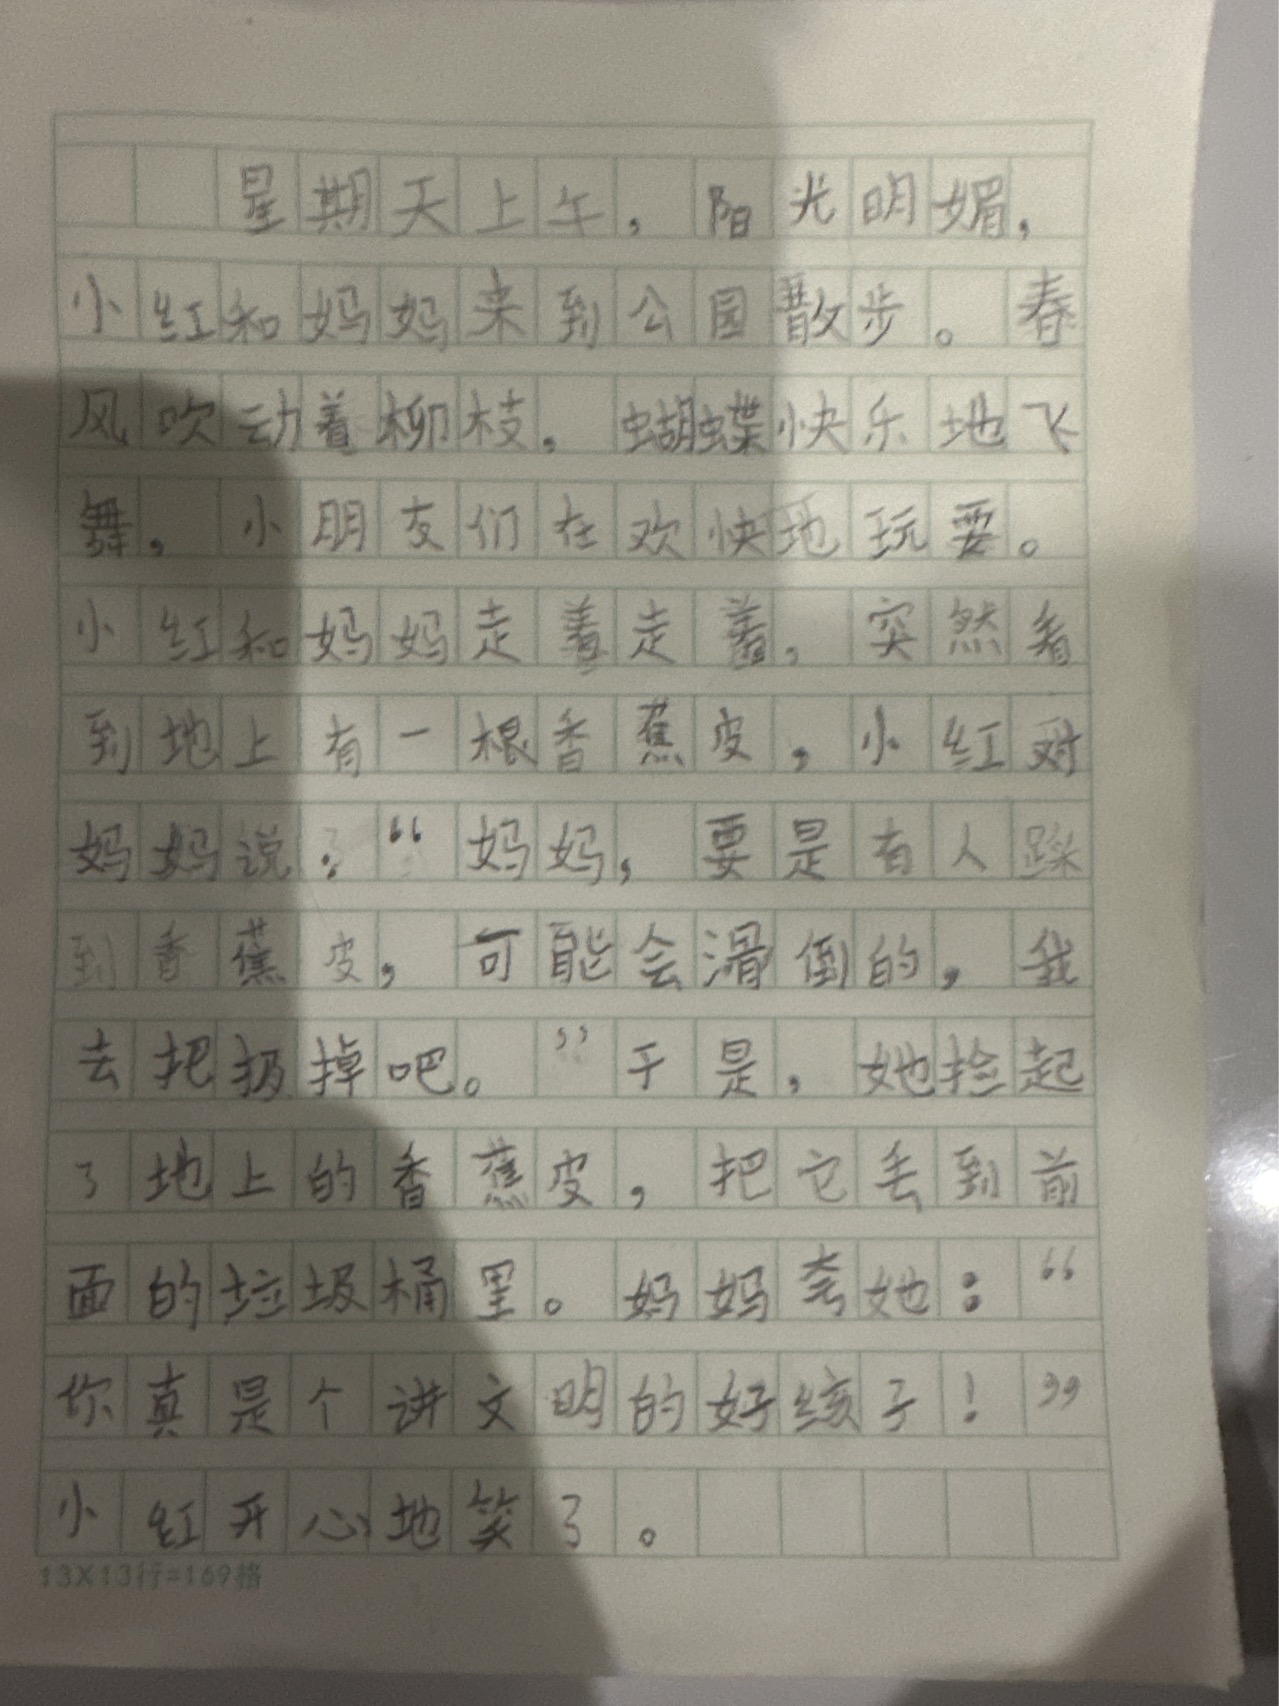 星期天上午，阳光明媚，
小红和妈妈来到公园散步。春
风吹动着柳枝，蝴蝶快乐地飞
舞，小朋友们在欢快地玩耍。
小红和妈妈走着走着，突然看
到地上有一根香蕉皮，小红对
妈妈说：“妈妈，要是有人踩
到香蕉皮，可能会滑倒的，我
去把扔掉吧。”于是，她捡起
了地上的香蕉皮，把它丢到前
面的垃圾桶里。妈妈夸她：“
你真是个讲文明的好孩子！”
小红开心地笑了。
13X13行=169格